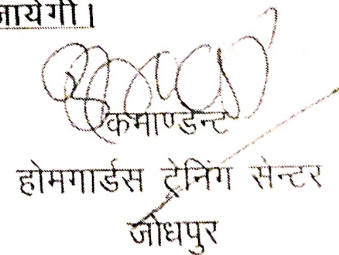 जायेगी।
कमाण्डेन्ट
होमगार्डस ट्रेनिंग सेन्टर
जोधपुर